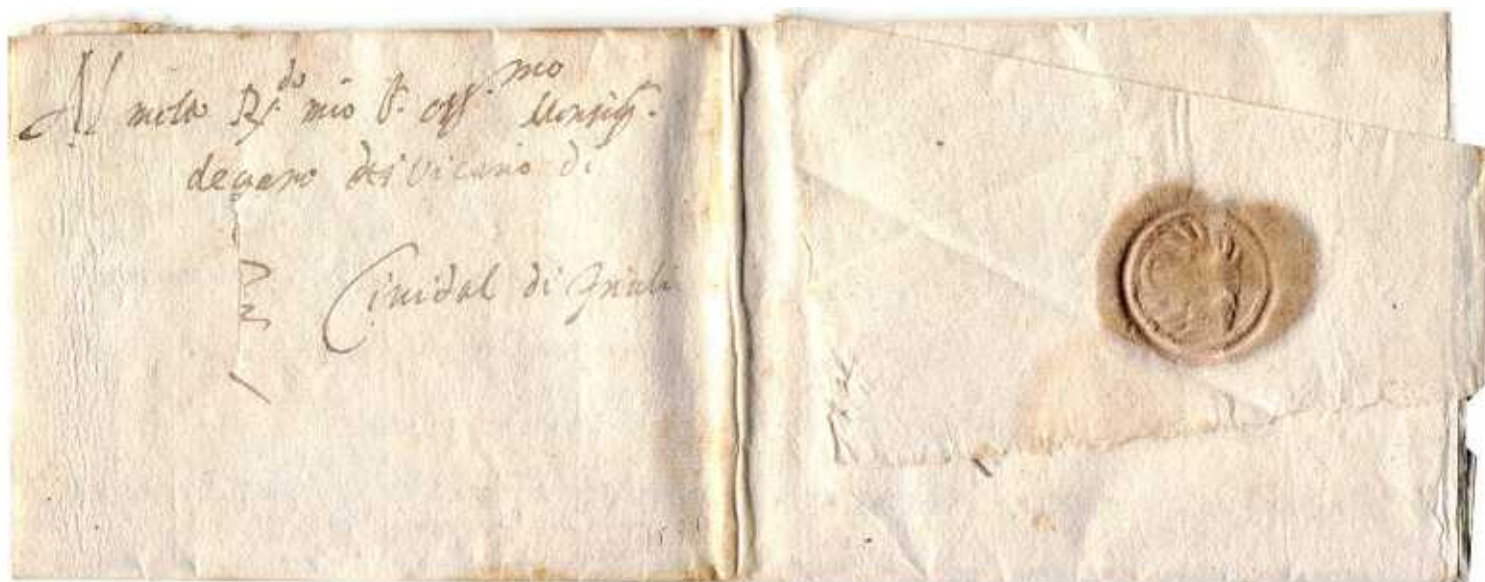 Al molto R.do mio S.r oss.mo Monsig.r
decano et Vicario di
Cividal di Friuli